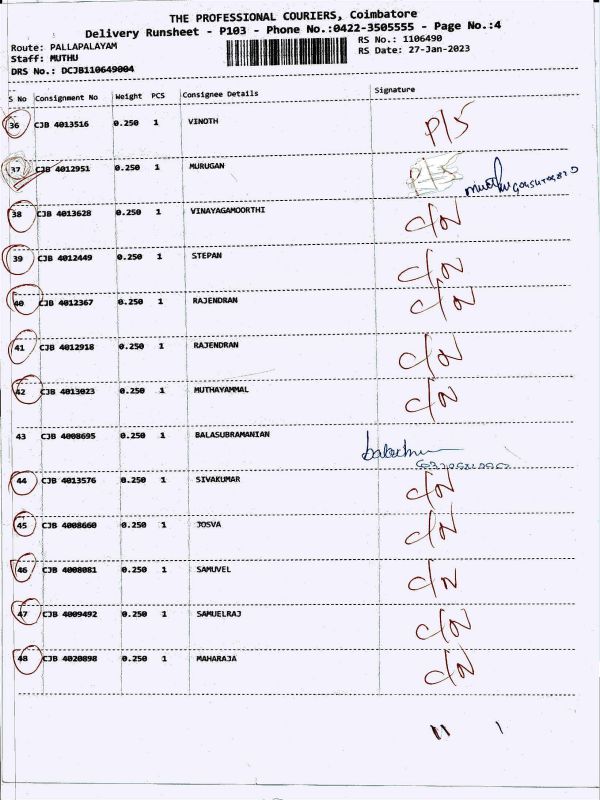 THE PROFESSIONAL COURIERS, Coimbatore
Delivery Runsheet - P103 - Phone No.:0422-3505555 - Page No.:4
Route: PALLAPALAYAM RS No.: 1106490
Staff: MUTHU RS Date: 27-Jan-2023
DRS No.: DCJB110649004
S No Consignment No Weight PCS Consignee Details Signature
36 CJB 4013516 0.250 1 VINOTH P/S
37 CJB 4012951 0.250 1 MURUGAN
38 CJB 4013628 0.250 1 VINAYAGAMOORTHI C/N
39 CJB 4012449 0.250 1 STEPAN C/N
40 CJB 4012367 0.250 1 RAJENDRAN C/N
41 CJB 4012918 0.250 1 RAJENDRAN C/N
42 CJB 4013023 0.250 1 MUTHAYAMMAL C/N
43 CJB 4008695 0.250 1 BALASUBRAMANIAN
44 CJB 4013576 0.250 1 SIVAKUMAR C/N
45 CJB 4008660 0.250 1 JOSVA C/N
46 CJB 4008081 0.250 1 SAMUVEL C/N
47 CJB 4009492 0.250 1 SAMUELRAJ C/N
48 CJB 4020898 0.250 1 MAHARAJA C/N
11 1